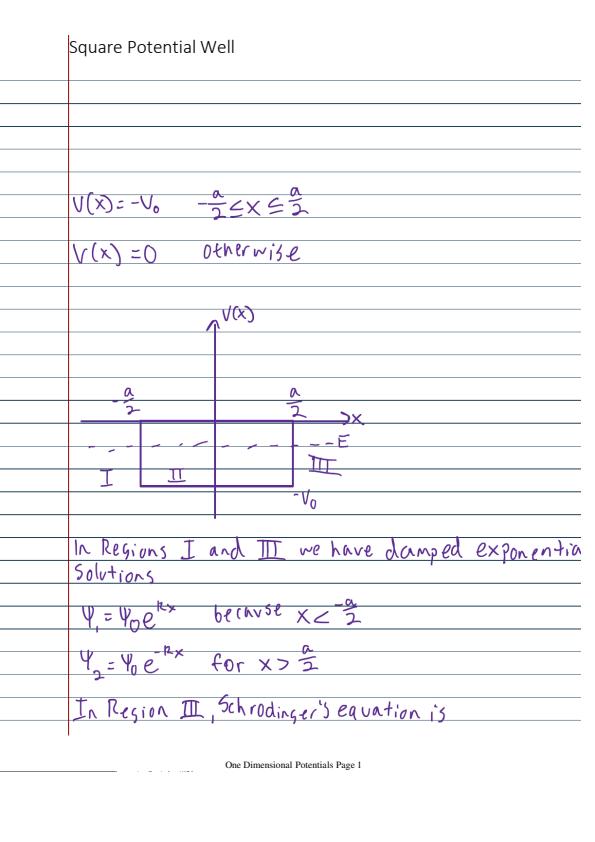 Square Potential Well
V(x) = -V₀ -a/2 ≤ x ≤ a/2
V(x) = 0 otherwise
V(x)
-a/2 a/2
x
E
I II III
-V₀
In Regions I and III we have damped exponentia
solutions
Ψ₁ = Ψ₀e^{kx} because x < -a/2
Ψ₂ = Ψ₀e^{-kx} for x > a/2
In Region III, Schrodinger's equation is
One Dimensional Potentials Page 1